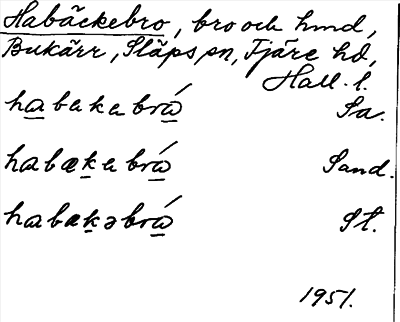 Habäckebro, bro och hmd,
Bukärr, Släps sn, Fjäre hd,
Hall. l.
habekebró Sa.
habækebró Sand.
habækəbró St.
1951.